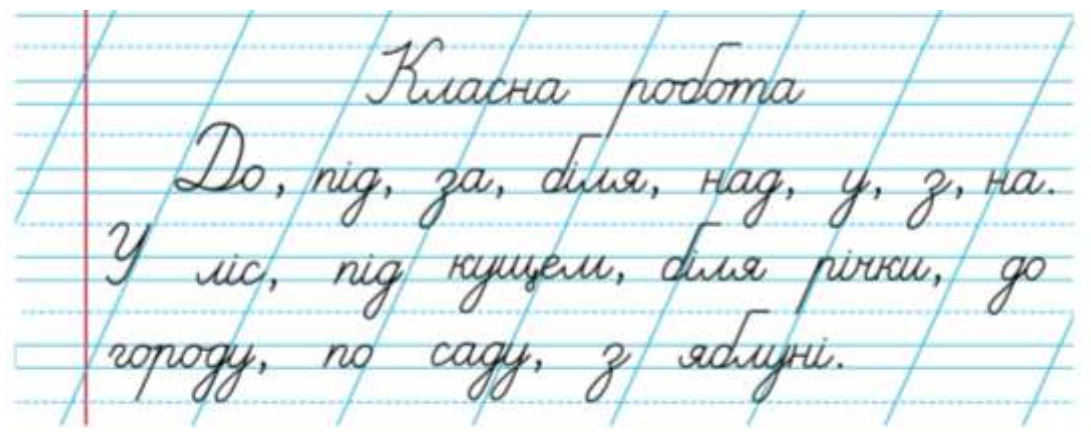 Класна робота
До, під, за, біля, над, у, з, на.
У ліс, під кущем, біля річки, до
городу, по саду, з яблуні.